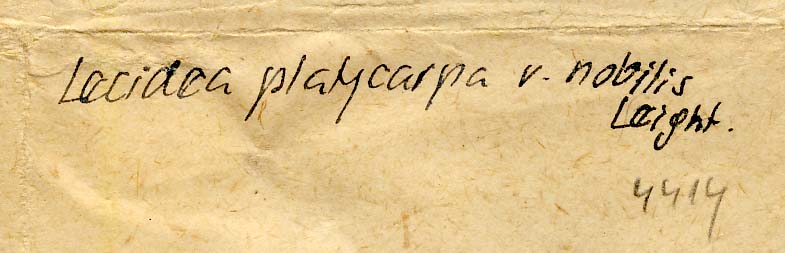 Lecidea platycarpa v. nobilis
Leight.
4414